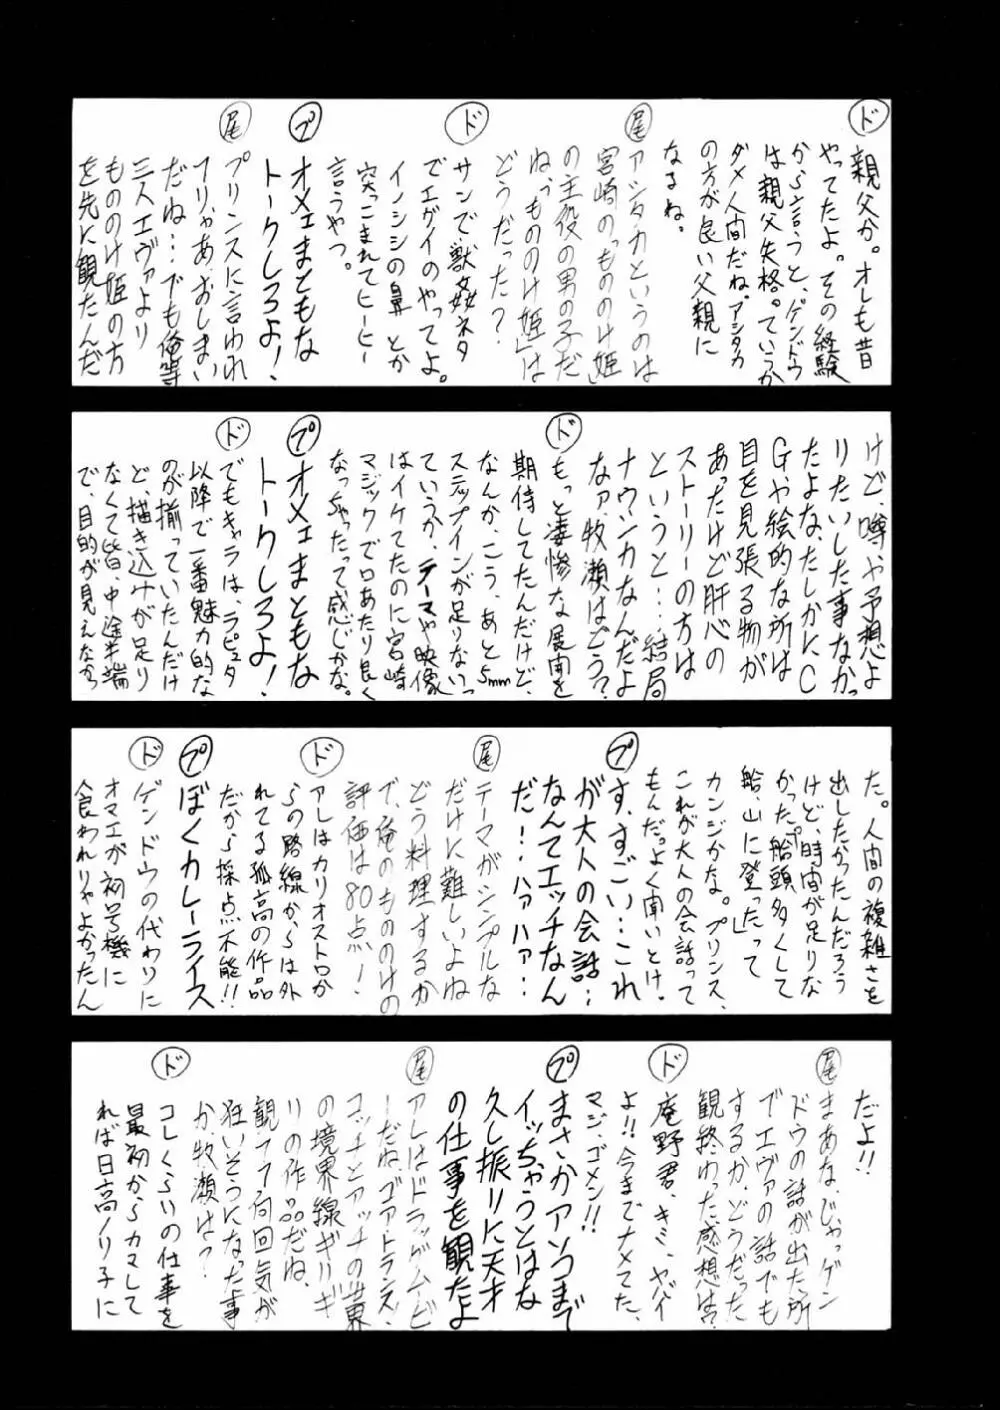 ド
親父か。オレも昔
やってたよ。その経験
から言うと、ゲンドウ
は親父失格。ていうか
ダメ人間だね。アシタカ
の方が良い父親に
なるね。
尾
アシタカというのは
宮崎の「もののけ姫」
の主役の男の子だ
ね。「もののけ姫」は
どうだった？
ド
サンで獣姦ネタ
でエグイのやってよ。
イノシシの鼻とか
突っこまれてヒーヒー
言うやつ。
プ
オメェまともな
トークしろよ！
尾
プリンスに言われ
フリゃあ、おしまい
だね…でも俺等
三人エヴァより
もののけ姫の方
を先に観たんだ
けど、噂や予想よ
りたいした事なかっ
たよな。たしかにC
G.や絵的な所は
目を見張る物が
あったけど肝心の
ストーリーの方は
というと…結局
ナウシカなんだよ
なァ、牧瀬はどう？
ド
もっと凄惨な展開を
期待してたんだけど、
なんか、こう、あと5mm
ステップインが足りないっ
ていうか、テーマや映像
はイケてたのに宮崎
マジックで口あたり良く
なっちゃったって感じかな。
プ
オメェまともな
トークしろよ！
ド
でもキャラは、ラピュタ
以降で一番魅力的な
のが揃っていたんだけ
ど、描き込みが足り
なくて皆、中途半端
で、目的が見えなかっ
た。人間の複雑さを
出したかったんだろう
けど、時間が足りな
かった。「船頭多くして
船、山に登った」って
カンジかな。プリンス、
これが大人の会話って
もんだっよく聞いとけ。
プ
す、すごい…これ
が大人の会話…
なんてエッチなん
だ！…ハァハァ…
尾
テーマがシンプルな
だけに難しいよね
どう料理するか
で、俺のもののけの
評価は80点！
ド
アレはカリオストロか
らの路線からは外
れてる孤高の作品
だから採点不能!!
プ
ぼくカレーライス
ド
ゲンドウの代わりに
オマエが初号機に
食われりゃよかったん
だよ!!
尾
まあな、じゃっゲン
ドウの話が出た所
でエヴァの話でも
するか、どうだった
観終わった感想は？
ド
庵野君、きミ、ヤバイ
よ!!今までナメてた、
マジ、ゴメン!!
プ
まさかアソコまで
イッちゃうとはな
久し振りに天才
の仕事を観たよ
尾
アレはドラッグムービ
ーだね、ゴアトランス、
コッチとアッチの世界
の境界線ギリギ
リの作品だね。
観フフ何回気が
狂いそうになった事
か、牧瀬は？
ド
コレくらいの仕事を
最初からカマして
れば日高ノリ子に